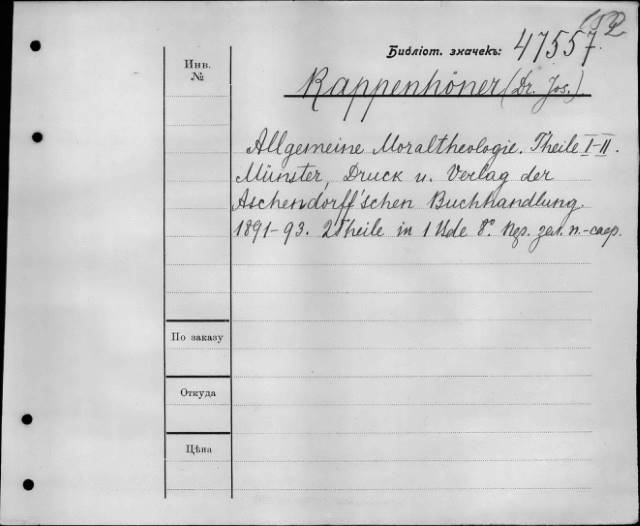 Библіот. значекъ: 47557.
Инв.
№
Rappenhöner (Dr. Jos.)
Allgemeine Moraltheologie. Theile I-II.
Münster, Druck u. Verlag der
Aschendorff'schen Buchhandlung.
1891-93. 2 Theile in 1 Bde 8°.
По заказу
Откуда
Цѣна